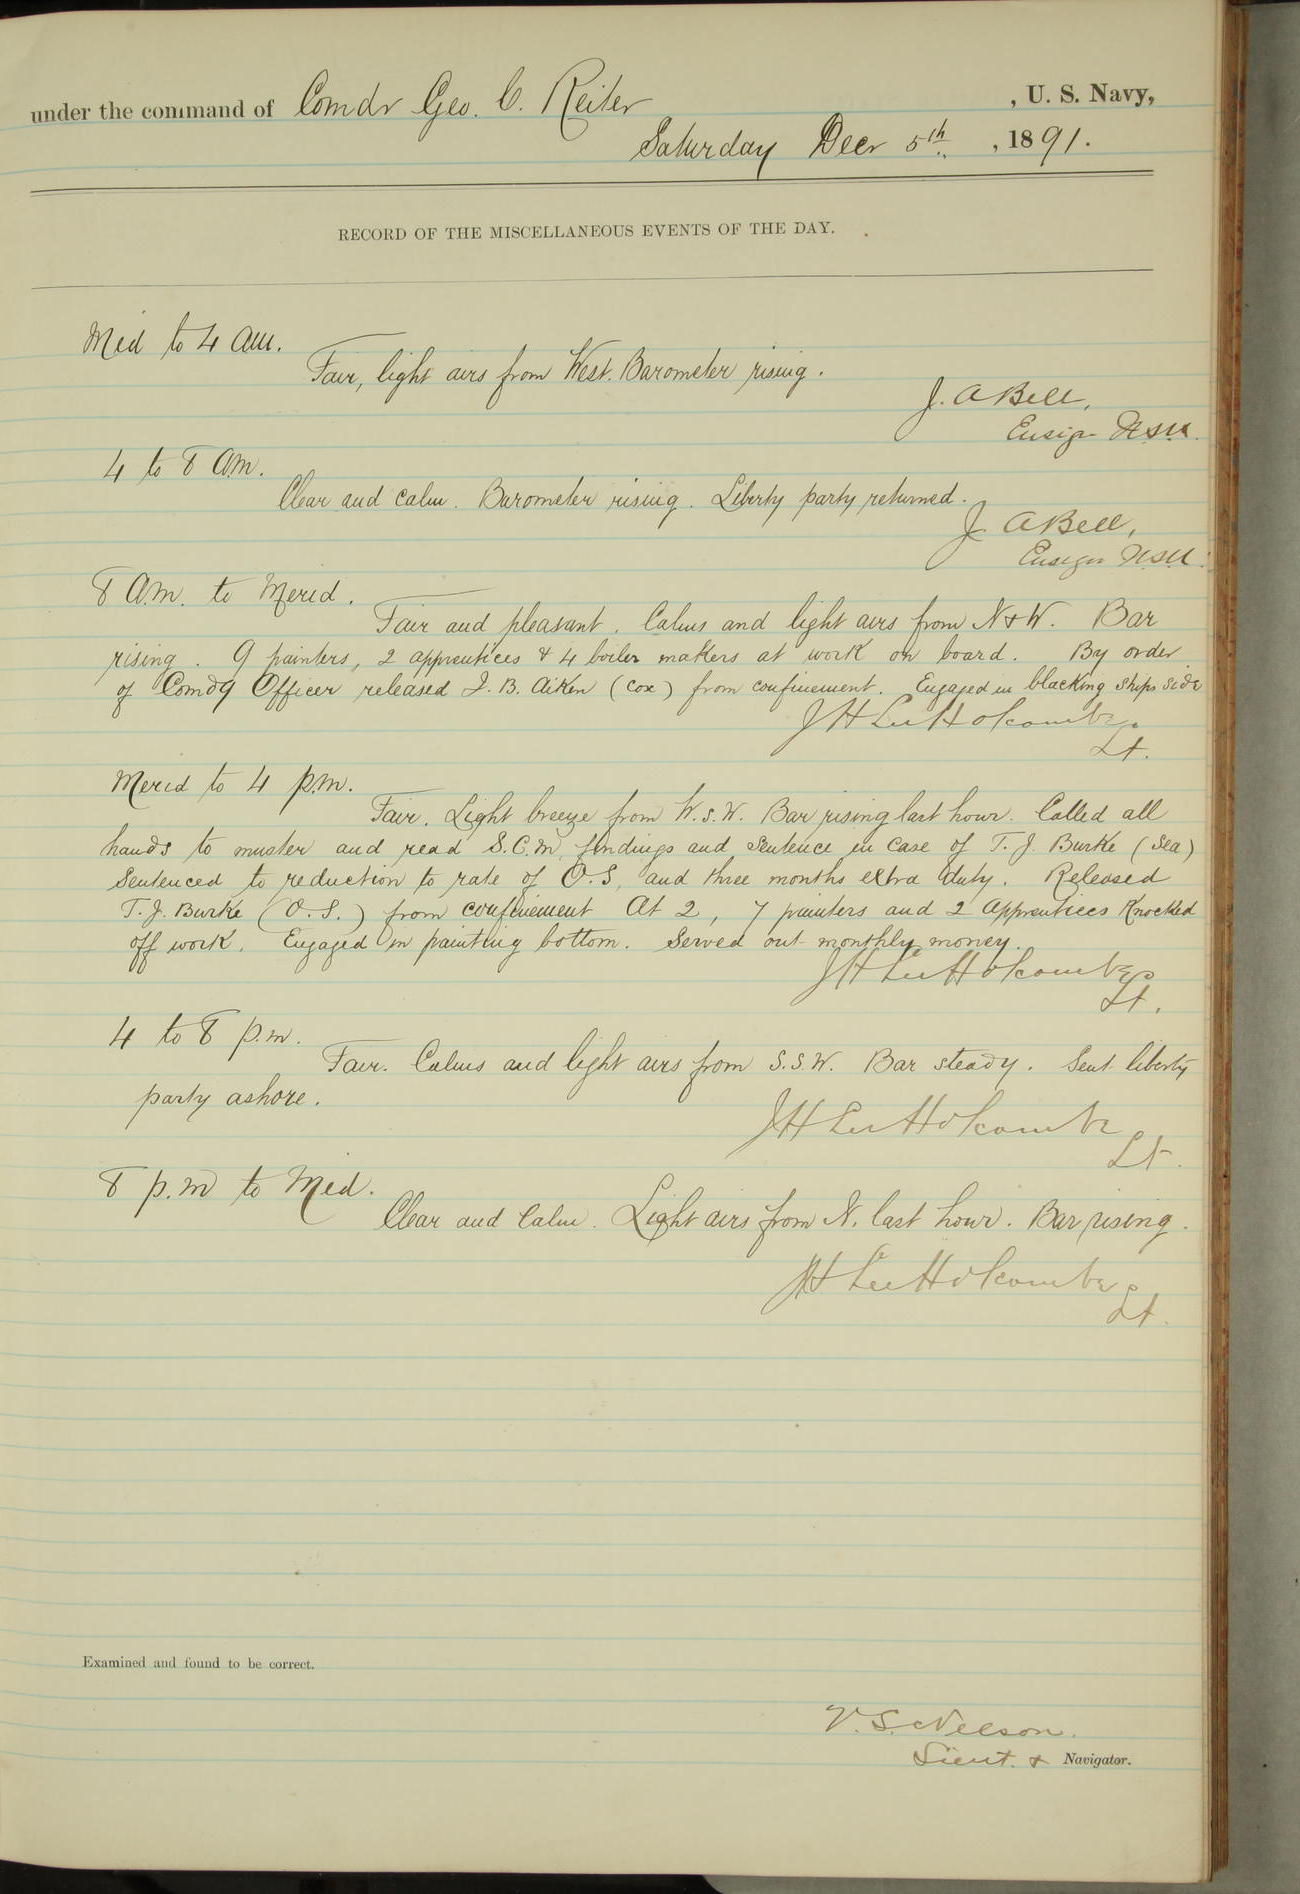 under the command of Comdr Geo. C. Reiter , U. S. Navy,
Saturday Decr 5th , 1891.
RECORD OF THE MISCELLANEOUS EVENTS OF THE DAY.
Mid to 4 am.
Fair, light airs from West. Barometer rising.
J. A Bell,
Ensign USN.
4 to 8 A.M.
Clear and calm. Barometer rising. Liberty party returned.
J. A Bell,
Ensign USN.
8 A.M. to Merid.
Fair and pleasant. Calms and light airs from N & W. Bar
rising. 9 painters, 2 apprentices & 4 boiler makers at work on board. By order
of Comdg Officer released J. B. Aiken (Cox) from confinement. Engaged in blacking ships side
J H Lee Holcombe
Lt.
Merid to 4 p.m.
Fair. Light breeze from W.S.W. Bar rising last hour. Called all
hands to muster and read S.C.M. findings and sentence in case of T. J. Burke (Sea)
Sentenced to reduction to rate of O.S, and three months extra duty. Released
T. J. Burke (O.S.) from confinement At 2, 7 painters and 2 Apprentices Knocked
off work. Engaged in painting bottom. Served out monthly money.
J H Lee Holcombe
Lt.
4 to 8 p.m.
Fair. Calms and light airs from S.S.W. Bar steady. Sent liberty
party ashore.
J H Lee Holcombe
Lt.
8 p.m to Med.
Clear and Calm. Light airs from N. last hour. Bar rising.
J H Lee Holcombe
Lt.
Examined and found to be correct.
V. S. Nelson.
Lieut. & Navigator.